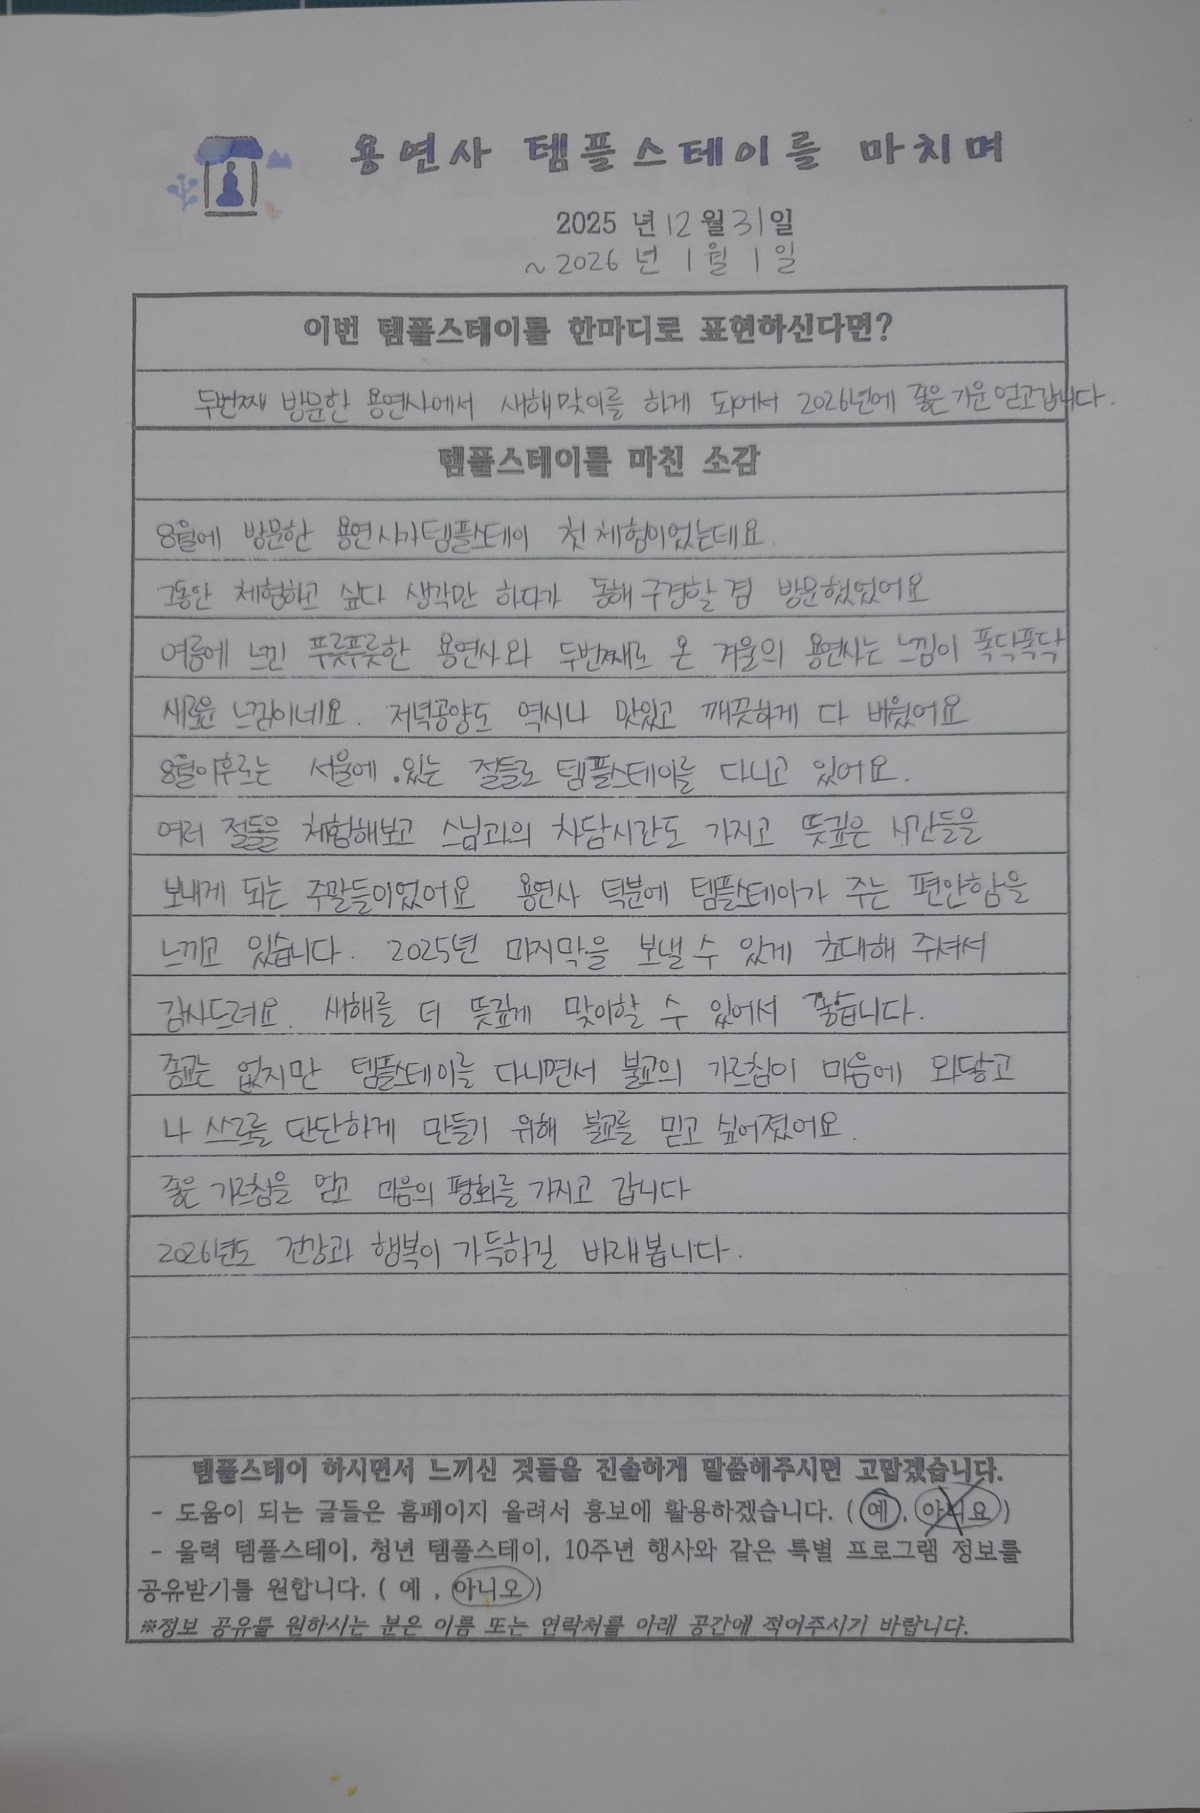 용연사 템플스테이를 마치며
2025 년 12 월 31일
~ 2026 년 1 월 1 일
이번 템플스테이를 한마디로 표현하신다면?
두번째 방문한 용연사에서 새해맞이를 하게 되어서 2026년에 좋은 기운 얻고갑니다.
템플스테이를 마친 소감
8월에 방문한 용연사가 템플스테이 첫 체험이었는데요.
그동안 체험하고 싶다 생각만 하다가 동해 구경할 겸 방문했었어요
여름에 느낀 푸릇푸릇한 용연사와 두번째로 온 겨울의 용연사는 느낌이 폭닥폭닥
새로운 느낌이네요. 저녁공양도 역시나 맛있고 깨끗하게 다 비웠어요
8월이후로는 서울에 있는 절들로 템플스테이를 다니고 있어요.
여러 절들을 체험해보고 스님과의 차담시간도 가지고 뜻깊은 시간들을
보내게 되는 주말들이었어요 용연사 덕분에 템플스테이가 주는 편안함을
느끼고 있습니다. 2025년 마지막을 보낼 수 있게 초대해 주셔서
감사드려요. 새해를 더 뜻깊게 맞이할 수 있어서 좋습니다.
종교는 없지만 템플스테이를 다니면서 불교의 가르침이 마음에 와닿고
나 스스로를 단단하게 만들기 위해 불교를 믿고 싶어졌어요.
좋은 가르침을 얻고 마음의 평화를 가지고 갑니다
2026년도 건강과 행복이 가득하길 바래봅니다.
템플스테이 하시면서 느끼신 것들을 진솔하게 말씀해주시면 고맙겠습니다.
- 도움이 되는 글들은 홈페이지 올려서 홍보에 활용하겠습니다. ( 예 , 아니요 )
- 울력 템플스테이, 청년 템플스테이, 10주년 행사와 같은 특별 프로그램 정보를
공유받기를 원합니다. ( 예 , 아니오 )
※정보 공유를 원하시는 분은 이름 또는 연락처를 아래 공간에 적어주시기 바랍니다.